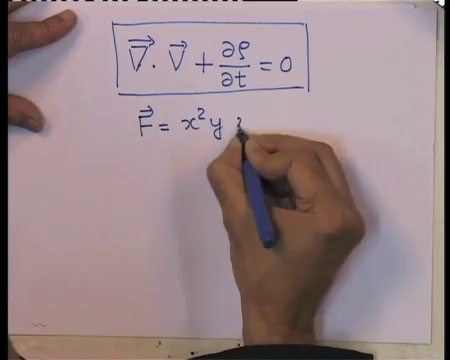 ∇⃗ · V⃗ + ∂ρ/∂t = 0
F⃗ = x²y